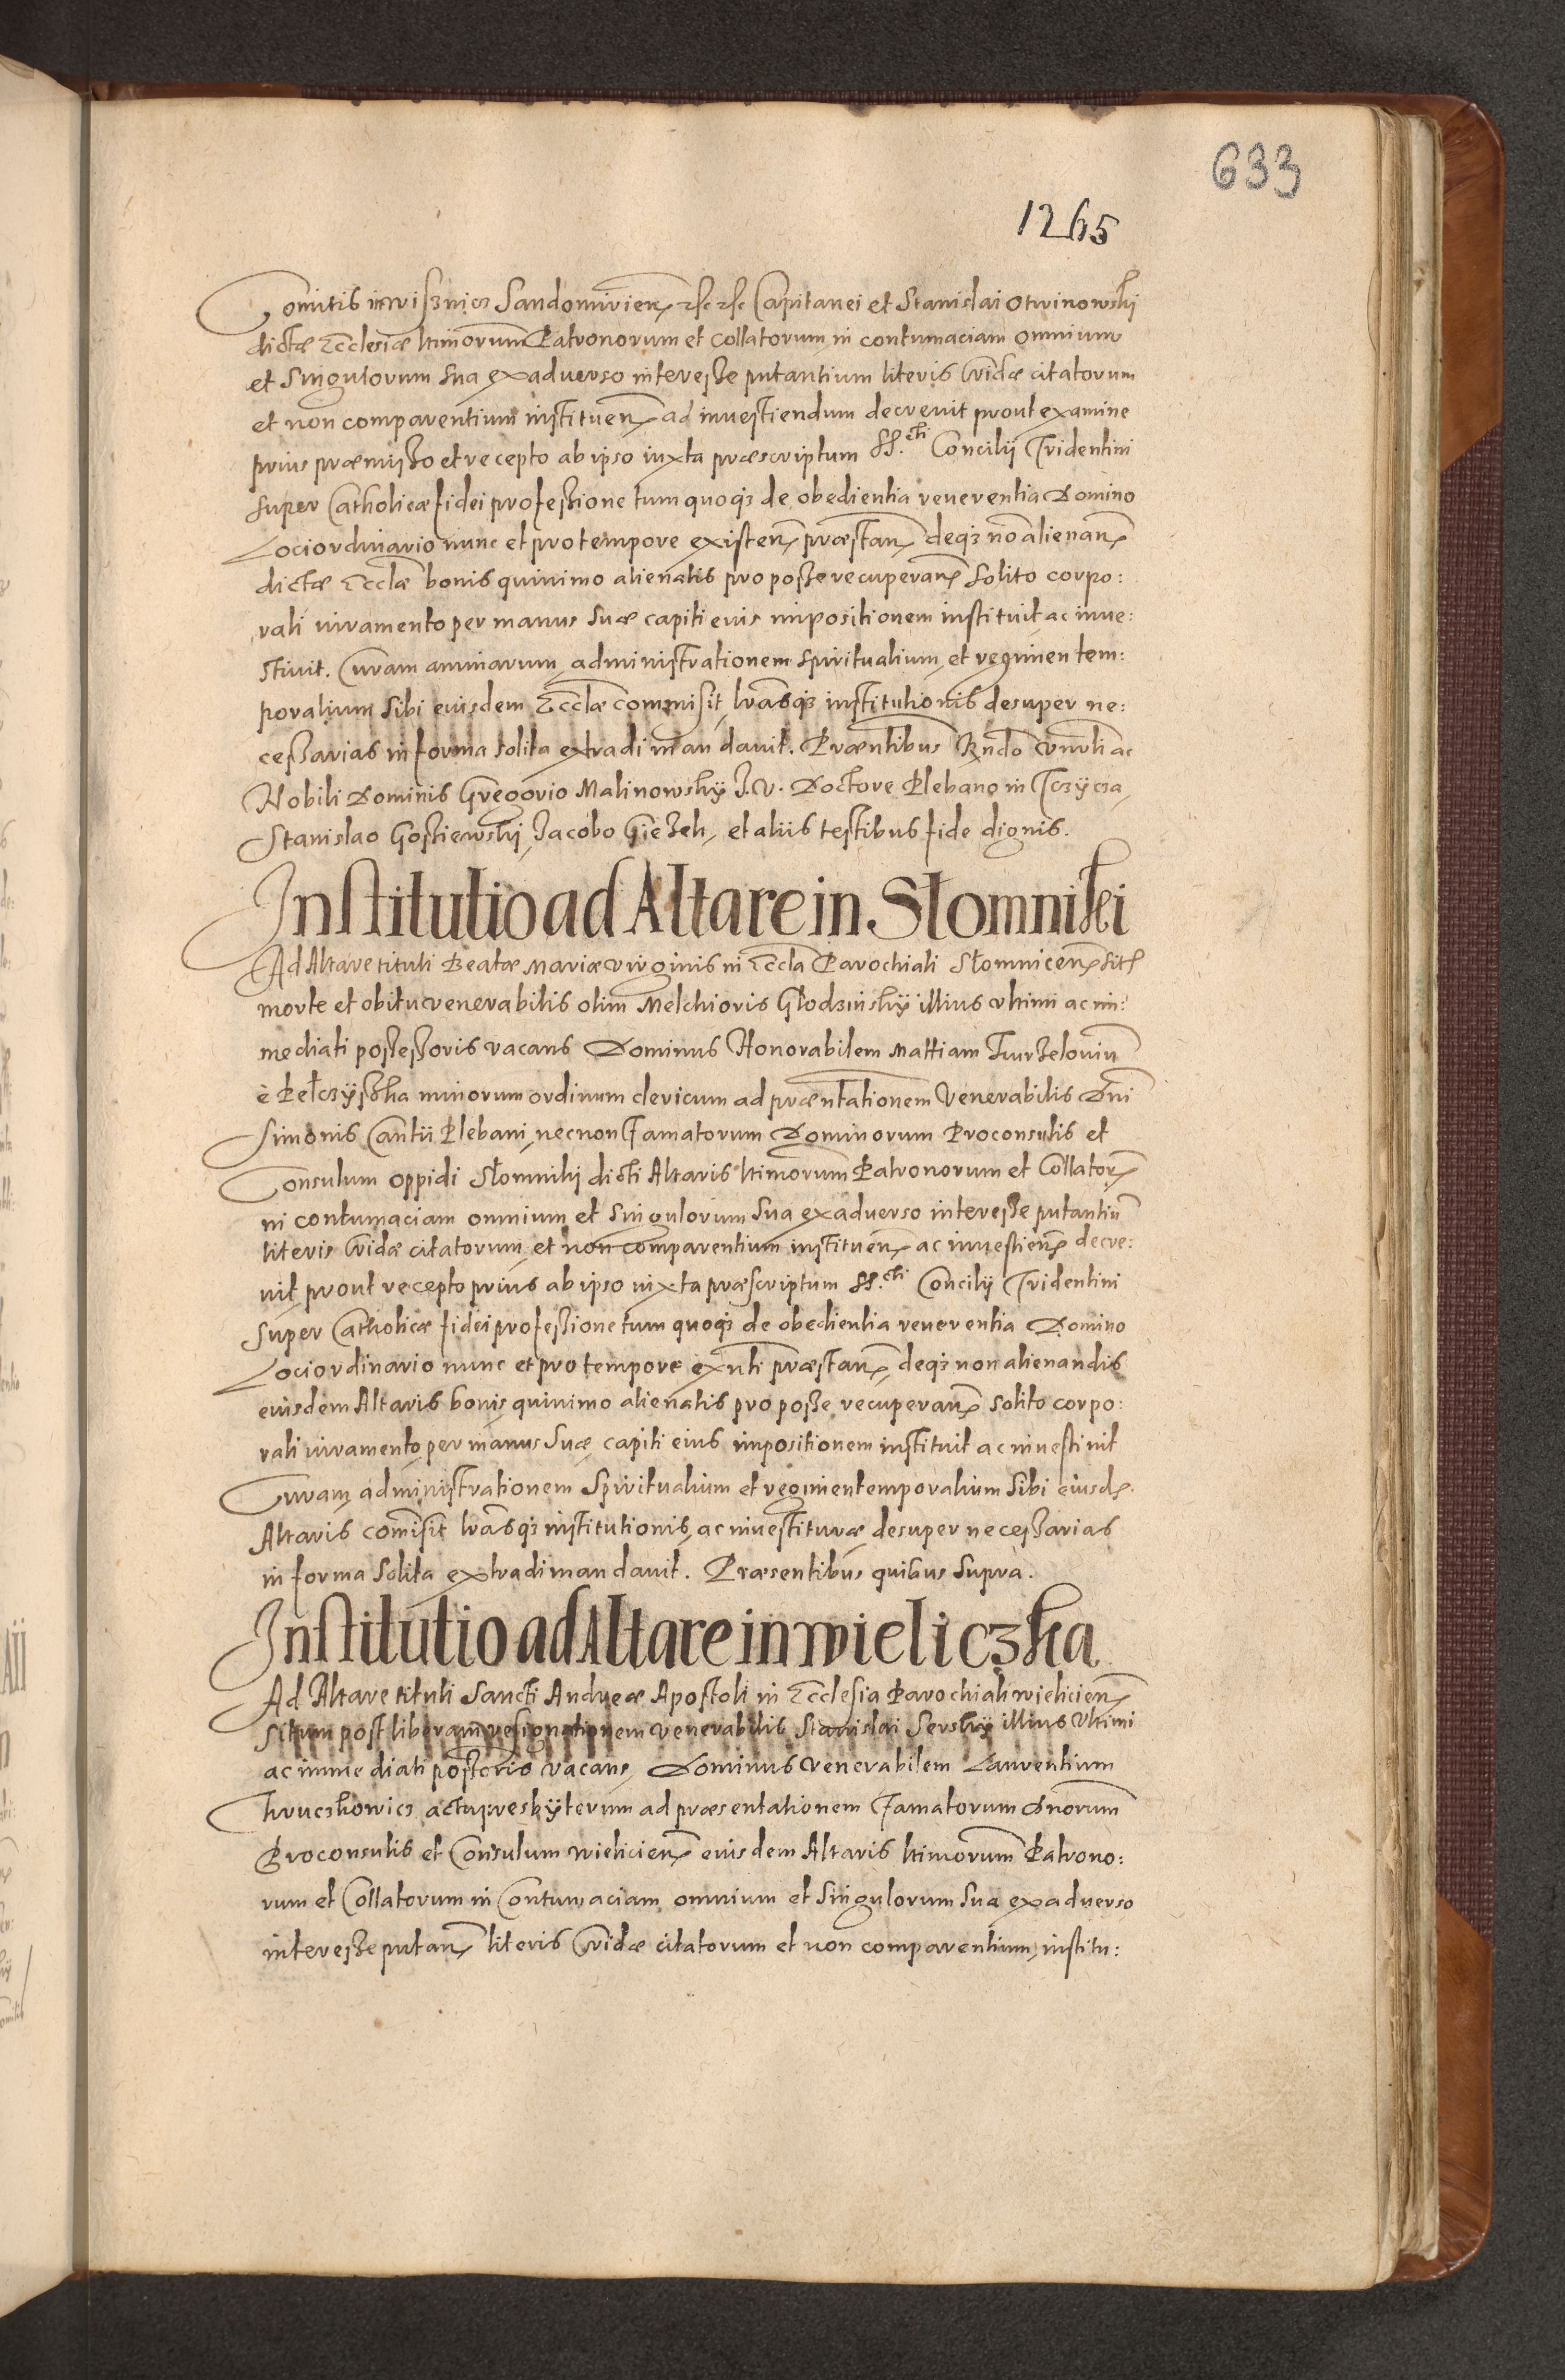 633
1265
Comitis in Wisznicz Sandomirien̄ etc etc Capitanei et Stanislai Otwinowski
dictæ Eccłesiæ ltimorum Patronorum et Collatorum in contumaciam omnium
et singulorum sua exaduerso interesse putantium literis Cridæ citatorum
et non comparentium instituen̄ ad inuestiendum decreuit prout examine
prius præmisso et recepto ab ipso iuxta præscriptum SS.cti Concilij Tridentini
super Catholicæ fidei professione tum quoq3 de obedientia reuerentia Domino
Loci ordinario nunc et pro tempore existen̄ præstan̄ deq3 nō alienan̄
dictæ Ecclæ bonis quinimo alienatis pro posse recuperan̄ solito corpo:
rali iuramento per manus suæ capiti eius impositionem instituit ac inue:
stiuit. Curam animarum administrationem spiritualium et regimen tem:
poralium sibi eiusdem Ecclæ commisit, lrāsq3 institutionis desuper ne:
cessarias in forma solita extradi mandauit. Præntibus Rndo Vnrli ac
Nobili Dominis Gregorio Malinowsky J.V. Doctore Plebano in Tczycza,
Stanislao Gosziewski, Jacobo Gieżek, et aliis testibus fide dignis.
Institutio ad Altare in Słomniki
Ad Altare tituli Beatæ Mariæ Virginis in Eccla Parochiali Słomnicen̄ sit̄
morte et obitu venerabilis olim Melchioris Głodzinsky illius vltimi ac im:
mediati possessoris vacans Dominus Honorabilem Mattiam
è Pełczyszka minorum ordinum clericum ad præntationem Venerabilis Dni
Simonis Cantii Plebani, necnon Famatorum Dominorum Proconsulis et
Consulum oppidi Słomniki dicti Altaris ltimorum Patronorum et Collator̄
in contumaciam omnium et singulorum sua exaduerso interesse putantiū
literis Cridæ citatorum et non comparentium instituen̄ ac inuestien̄ decre:
uit, prout recepto prius ab ipso iuxta præscriptum SS.cti Concilij Tridentini
super Catholicæ fidei professione tum quoq3 de obedientia reuerentia Domino
Loci ordinario nunc et pro tempore exnti præstan̄, deq3 non alienandis
eiusdem Altaris bonis, quinimo alienatis pro posse recuperan̄ solito corpo:
rali iuramento per manus suæ capiti eius impositionem instituit ac inuestiuit
Curam administrationem spiritualium et regimen temporalium sibi eiusd̄
Altaris com̄isit lrāsq3 institutionis, ac inuestituræ desuper necessarias
in forma solita extradi mandauit. Præsentibus quibus supra.
Institutio ad Altare in Wieliczka
Ad Altare tituli Sancti Andreæ Apostoli in Ecclesia Parochiali Wielicien̄
situm post liberam resignationem venerabilis Stanislai Sersky illius vltimi
ac immediati posseoris vacans, Dominus Venerabilem Laurentium
Kruczkowicz actu presbyterum ad præsentationem Famatorum Dnorum
Proconsulis et Consulum Wielicien̄ eiusdem Altaris ltimorum Patrono:
rum et Collatorum in Contumaciam omnium et singulorum sua exaduerso
interesse putan̄ literis Cridæ citatorum et non comparentium, institu: